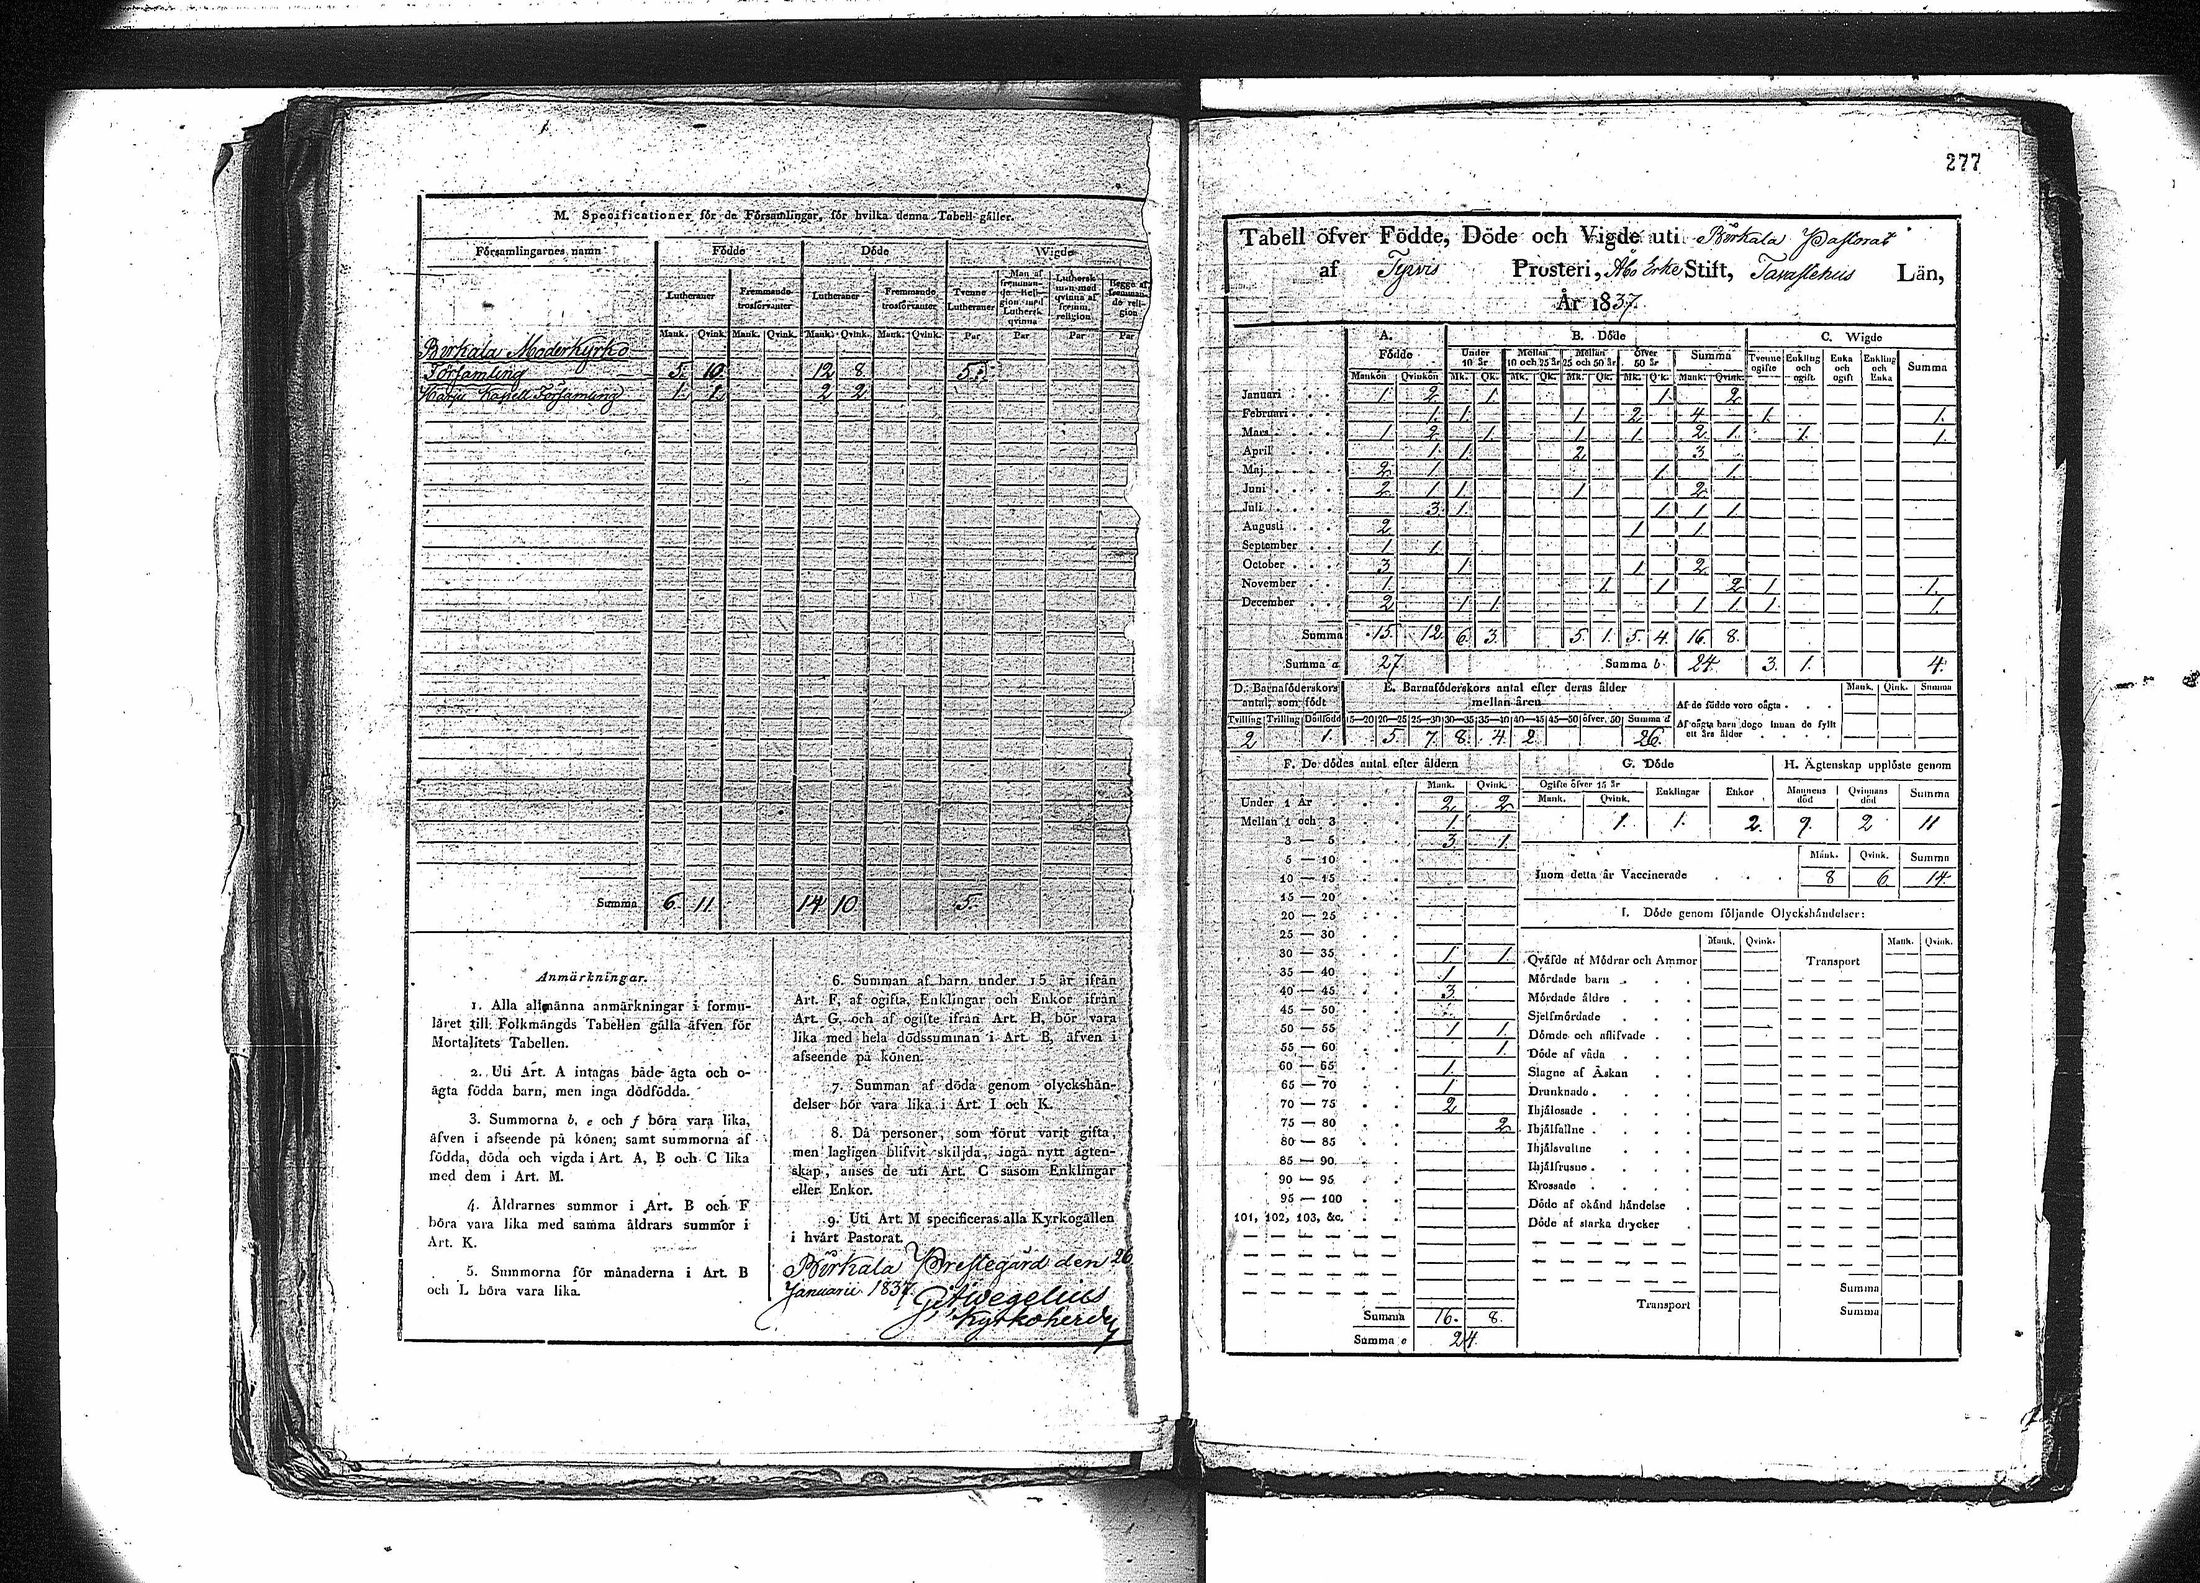 M. Specificationer för de Församlingar, för hvilka denna Tabell gäller.
Församlingarnes namn Födde Döde Wigde
Lutheraner Fremmande trosförvanter Lutheraner Fremmande trosförvanter Tvenne Lutheraner Man af fremmande Religion med Luthersk qvinna Luthersk man med qvinna af fremm. religion Begge af fremmande religion
Mank. Qvink. Mank. Qvink. Mank. Qvink. Mank. Qvink. Par Par Par Par
Birkala Moderkyrko
Församling 5. 10. 12 8. 5.
Harju Kapell Församling 1. 1. 2 2.
Summa 6. 11 14 10 5.
Anmärkningar.
1. Alla allmänna anmärkningar i formu-
läret till Folkmängds Tabellen gälla äfven för
Mortalitets Tabellen.
2. Uti Art. A intagas både ägta och o-
ägta födda barn, men inga dödfödda.
3. Summorna b, e och f böra vara lika,
äfven i afseende på könen; samt summorna af
födda, döda och vigda i Art. A, B och C lika
med dem i Art. M.
4. Åldrarnes summor i Art. B och F
böra vara lika med samma åldrars summor i
Art. K.
5. Summorna för månaderna i Art. B
och L böra vara lika.
6. Summan af barn under 15 år ifrån
Art. F, af ogifta, Enklingar och Enkor ifrån
Art. G, och af ogifte ifrån Art. H, bör vara
lika med hela dödssumman i Art. B, äfven i
afseende på könen.
7. Summan af döda genom olyckshän-
delser bör vara lika i Art. I och K.
8. Då personer, som förut varit gifta,
men lagligen blifvit skiljda, ingå nytt ägten-
skap, anses de uti Art. C såsom Enklingar
eller Enkor.
9. Uti Art. M specificeras alla Kyrkogällen
i hvärt Pastorat.
Birkala Prestegård den 26
Januarii 1837.
Kyrkoherde
277
Tabell öfver Födde, Döde och Vigde uti Birkala Pastorat
af Tyrvis Prosteri, Åbo Erke Stift, Tavastehus Län,
År 1837.
A. B. Döde C. Wigde
Födde Under 10 år Mellan 10 och 25 år Mellan 25 och 50 år Öfver 50 år Summa Tvenne ogifte Enkling och ogift Enka och ogift Enkling och Enka Summa
Mankön Qvinkön Mk. Qk. Mk. Qk. Mk. Qk. Mk. Qk. Mank. Qvink.
Januari 1. 2. 1. 1. 2.
Februari 1. 1. 1. 2. 4. 1. 1.
Mars 1. 2. 1. 1. 1. 2. 1. 1. 1.
April 1. 1. 2. 3.
Maj 2. 1. 1. 1.
Juni 2. 1. 1. 1. 2.
Juli 3. 1. 1. 1. 1.
Augusti 2. 1. 1.
September 1. 1.
October 3. 1. 1. 2.
November 1. 1. 1. 2. 1. 1.
December 2. 1. 1. 1. 1. 1. 1.
Summa 15. 12. 6. 3. 5. 1. 5. 4. 16. 8.
Summa a 27. Summa b 24. 3. 1. 4.
D. Barnaföderskors antal, som födt E. Barnaföderskors antal efter deras ålder mellan åren Mank. Qink. Summa
Tvilling Trilling Dödfödd 15—20 20—25 25—30 30—35 35—40 40—45 45—50 öfver 50 Summa d
2 1. 5. 7. 8. 4. 2. 26.
Af de födde voro oägta
Af oägta barn dogo innan de fyllt
ett års ålder
F. De dödes antal efter åldern
Mank. Qvink.
Under 1 År 2. 2.
Mellan 1 och 3 1.
3 — 5 3. 1.
5 — 10
10 — 15
15 — 20
20 — 25
25 — 30
30 — 35 1. 1.
35 — 40 1.
40 — 45 3.
45 — 50
50 — 55 1. 1.
55 — 60 1.
60 — 65 1.
65 — 70 1.
70 — 75 2.
75 — 80 2.
80 — 85
85 — 90
90 — 95
95 — 100
101, 102, 103, &c.
Summa 16. 8.
Summa e 24.
G. Döde H. Ägtenskap upplöste genom
Ogifte öfver 15 år Enklingar Enkor Mannens död Qvinnans död Summa
Mank. Qvink.
1. 1. 2. 9. 2 11
Mank. Qvink. Summa
Inom detta år Vaccinerade 8 6. 14.
I. Döde genom följande Olyckshändelser:
Mank. Qvink. Mank. Qvink.
Qväfde af Mödrar och Ammor Transport
Mördade barn
Mördade äldre
Sjelfmördade
Dömde och aflifvade
Döde af våda
Slagne af Åskan
Drunknade
Ihjälosade
Ihjälfallne
Ihjälsvultne
Ihjälfrusne
Krossade
Döde af okänd händelse
Döde af starka drycker
Summa
Transport Summa